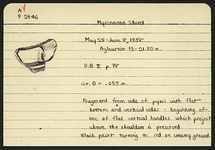 A
P 2846
Mycenaean Sherd
May 25 - June 8, 1938
O.A. II p. 88
Gr. D = .055 m.
Fragment from side of pyxis with flat
bottom and vertical sides - beginning of
one of flat vertical handles which project
above the shoulders is preserved
Black paint turning to red on creamy ground